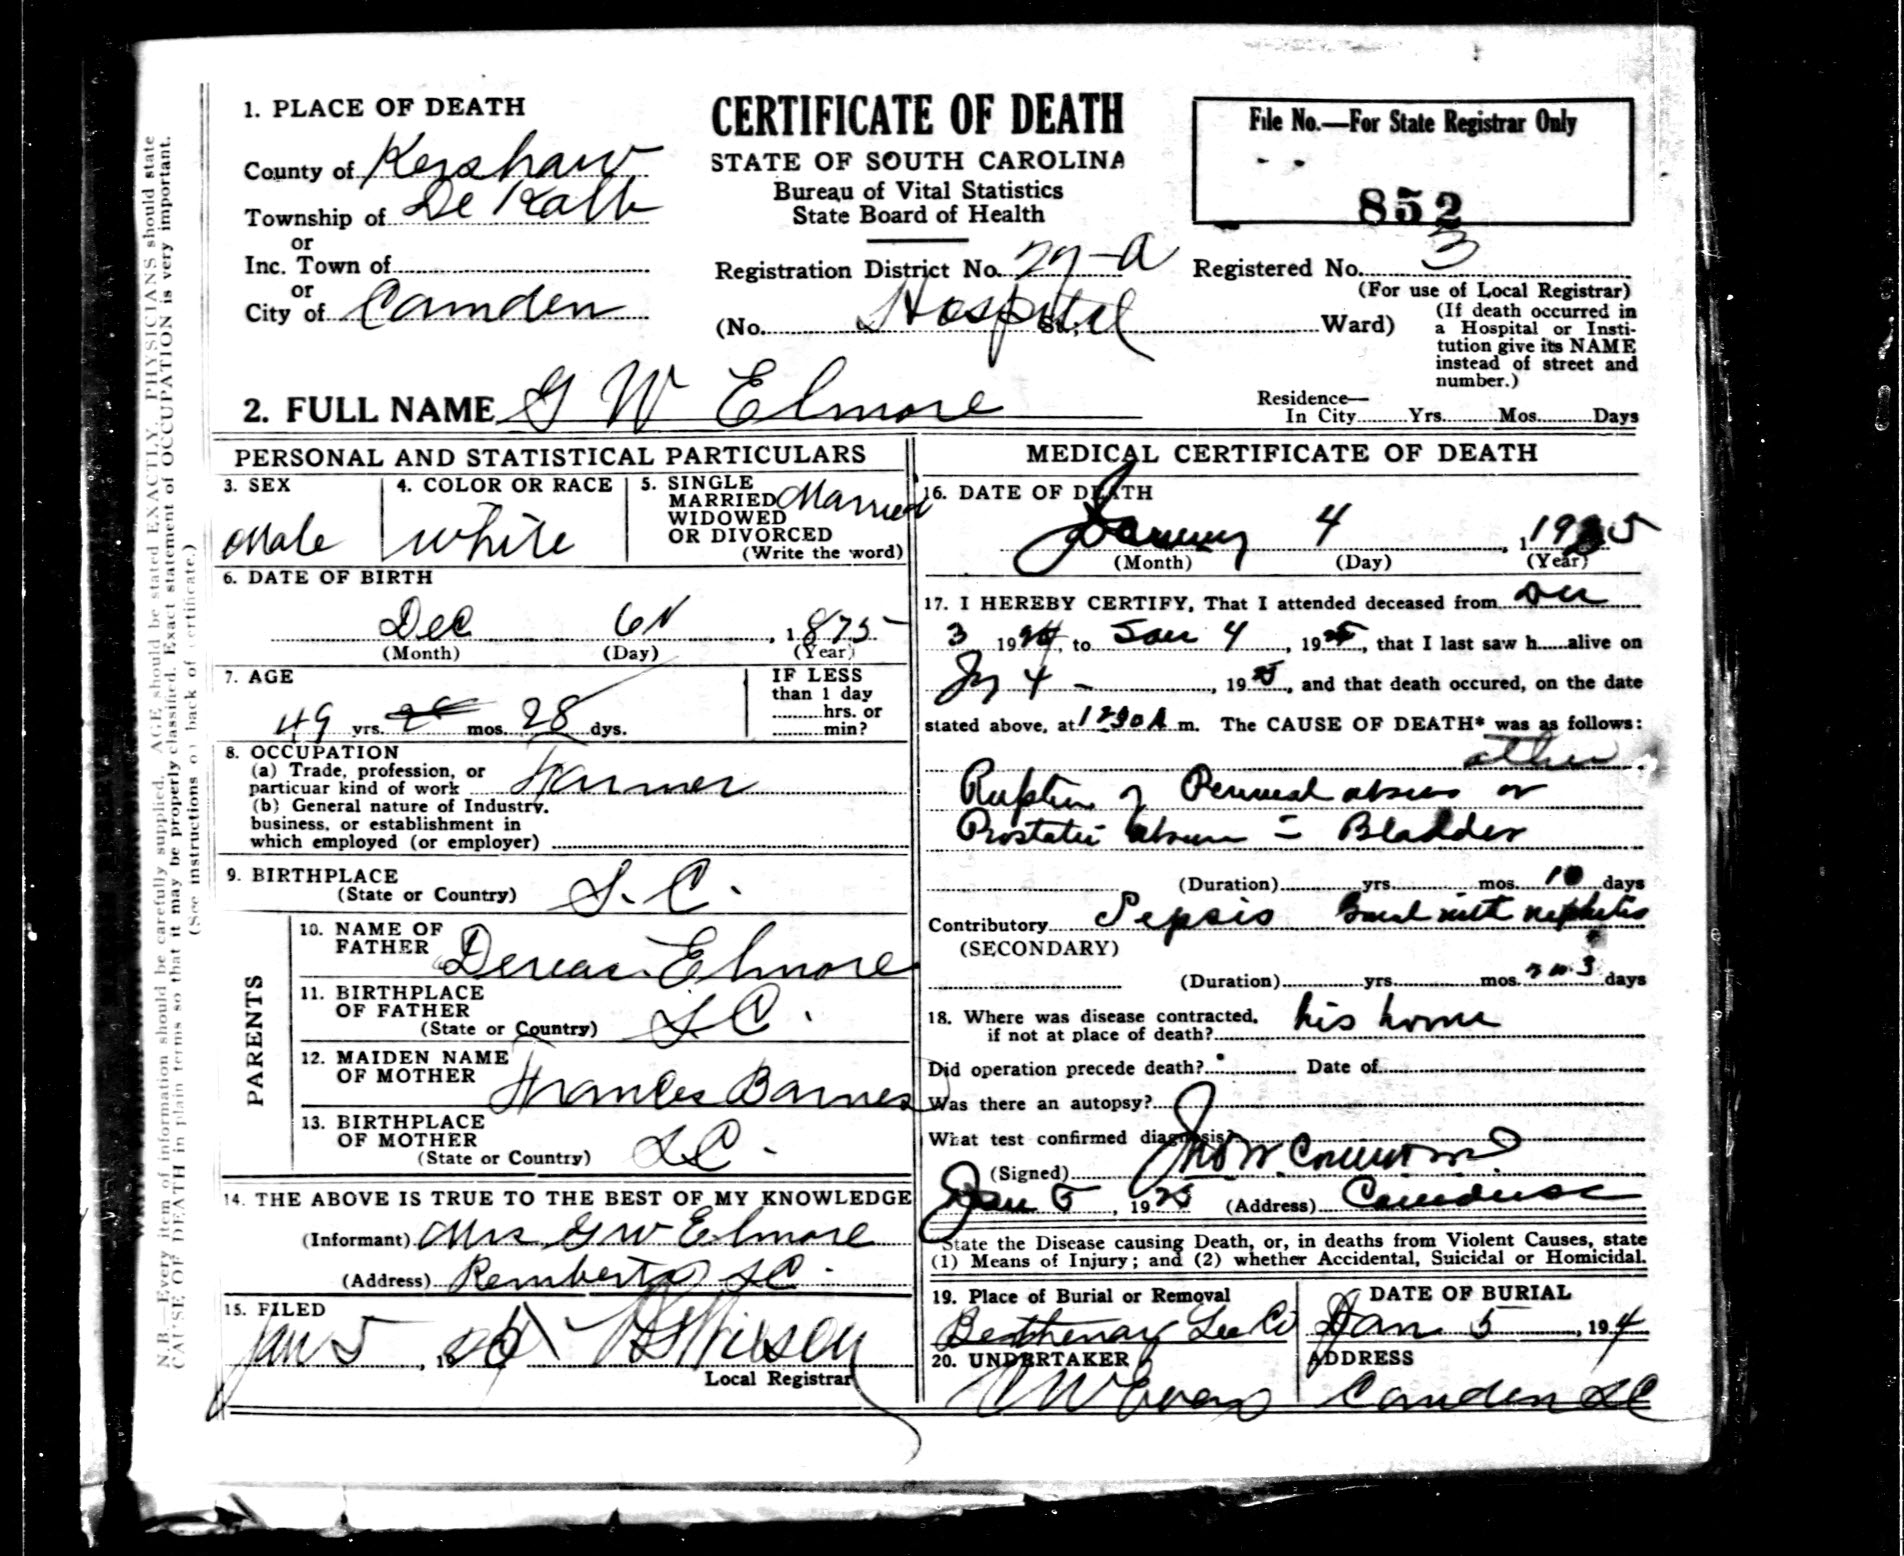 1. PLACE OF DEATH
County of Kershaw
Township of De Kalb
or
Inc. Town of
or
City of Camden
CERTIFICATE OF DEATH
STATE OF SOUTH CAROLINA
Bureau of Vital Statistics
State Board of Health
Registration District No. 27-A
(No. Hospital St.; Ward)
File No.—For State Registrar Only
852
Registered No. 3
(For use of Local Registrar)
(If death occurred in
a Hospital or Insti-
tution give its NAME
instead of street and
number.)
2. FULL NAME G W Elmore
Residence—
In City Yrs. Mos. Days
PERSONAL AND STATISTICAL PARTICULARS
3. SEX
Male
4. COLOR OR RACE
White
5. SINGLE
MARRIED Married
WIDOWED
OR DIVORCED
(Write the word)
6. DATE OF BIRTH
Dec 6 , 1875
(Month) (Day) (Year)
7. AGE
49 yrs. mos. 28 dys.
IF LESS
than 1 day
hrs. or
min?
8. OCCUPATION
(a) Trade, profession, or
particuar kind of work Farmer
(b) General nature of Industry.
business, or establishment in
which employed (or employer)
9. BIRTHPLACE
(State or Country) S. C.
PARENTS
10. NAME OF
FATHER Elmore
11. BIRTHPLACE
OF FATHER
(State or Country) S C.
12. MAIDEN NAME
OF MOTHER Frances Barnes
13. BIRTHPLACE
OF MOTHER
(State or Country) S C.
14. THE ABOVE IS TRUE TO THE BEST OF MY KNOWLEDGE
(Informant) Mrs G W Elmore
(Address) S C.
15. FILED
Jan 5 , 19 Wilson
Local Registrar
MEDICAL CERTIFICATE OF DEATH
16. DATE OF DEATH
January 4 , 1925
(Month) (Day) (Year)
17. I HEREBY CERTIFY, That I attended deceased from
3 1924, to Jan 4 , 1925, that I last saw h alive on
4 , 1925, and that death occured, on the date
stated above, at 1230 A m. The CAUSE OF DEATH* was as follows:
either
Rupture of Perineal abscess or
Prostatic abscess Bladder
(Duration) yrs. mos. 10 days
Contributory Sepsis with nephritis
(SECONDARY)
(Duration) yrs. mos. 3 days
18. Where was disease contracted, his home
if not at place of death?
Did operation precede death? Date of
Was there an autopsy?
What test confirmed diagnosis?
(Signed)
Jan 5 , 1925 (Address) Camden SC
State the Disease causing Death, or, in deaths from Violent Causes, state
(1) Means of Injury; and (2) whether Accidental, Suicidal or Homicidal.
19. Place of Burial or Removal
Lee Co
DATE OF BURIAL
Jan. 5 , 194
20. UNDERTAKER
ADDRESS
Camden SC
N.B.—Every item of information should be carefully supplied. AGE should be stated EXACTLY. PHYSICIANS should state
CAUSE OF DEATH in plain terms so that it may be properly classified. Exact statement of OCCUPATION is very important.
(See instructions on back of certificate.)